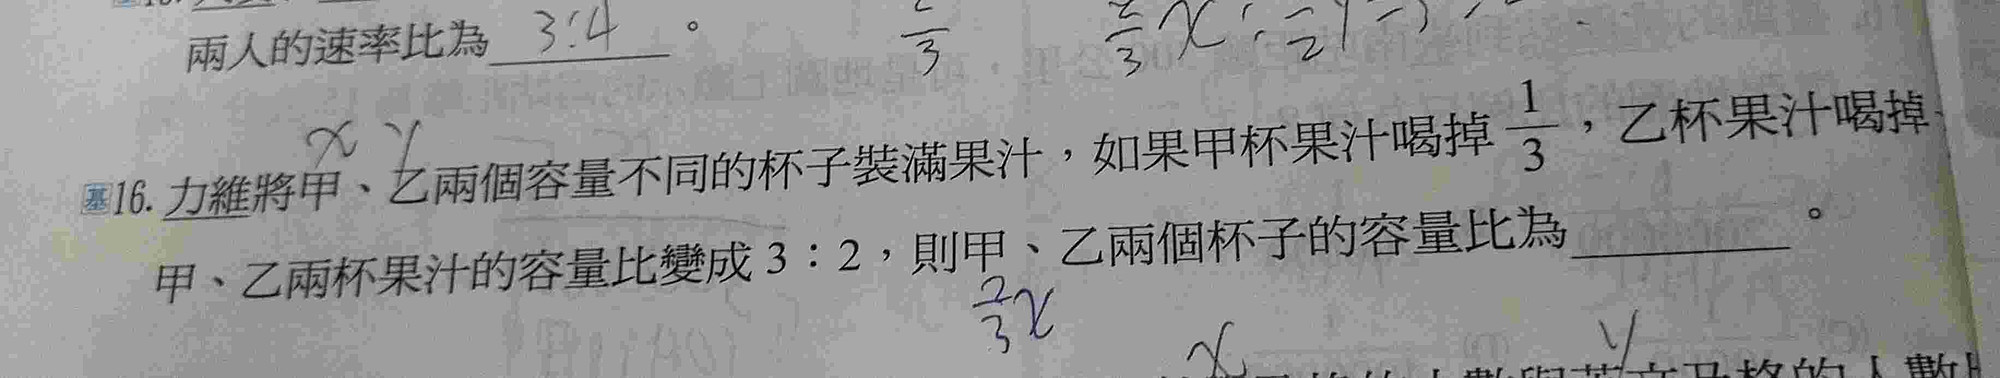 兩人的速率比為 3:4 。
2/3 2/3 x : 1/2 y =
x y
基16. 力維將甲、乙兩個容量不同的杯子裝滿果汁,如果甲杯果汁喝掉 1/3 ,乙杯果汁喝掉
甲、乙兩杯果汁的容量比變成 3:2,則甲、乙兩個杯子的容量比為 。
2/3 x
x y